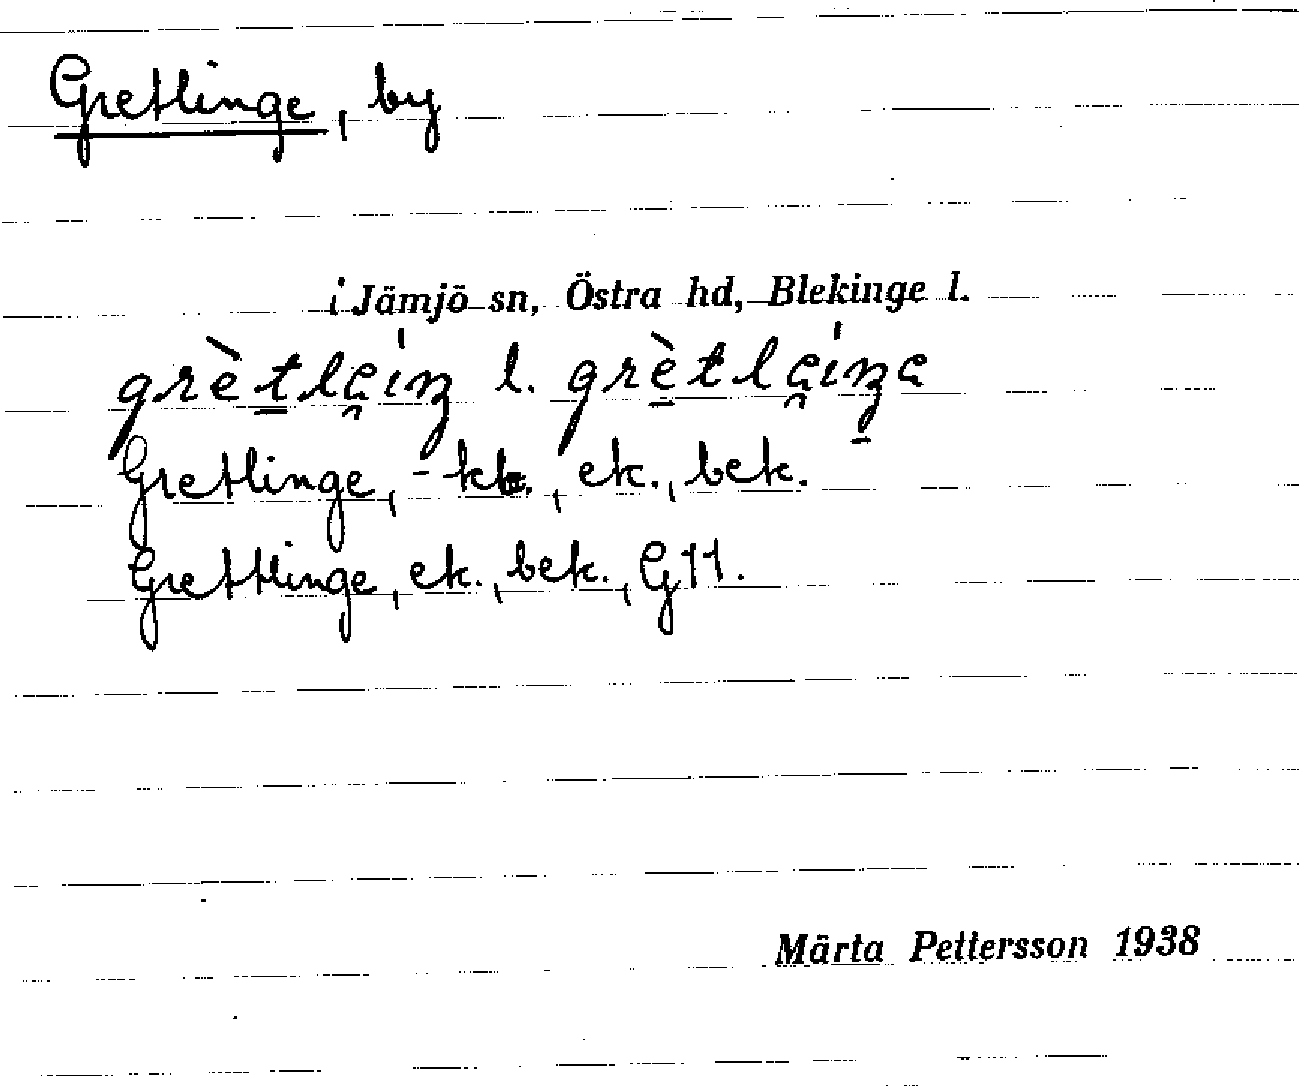 Gretlinge, by
i Jämjö sn, Östra hd, Blekinge l.
l.
Gretlinge, -kk., ek., bek.
Grettlinge, ek., bek., G11.
Märta Pettersson 1938